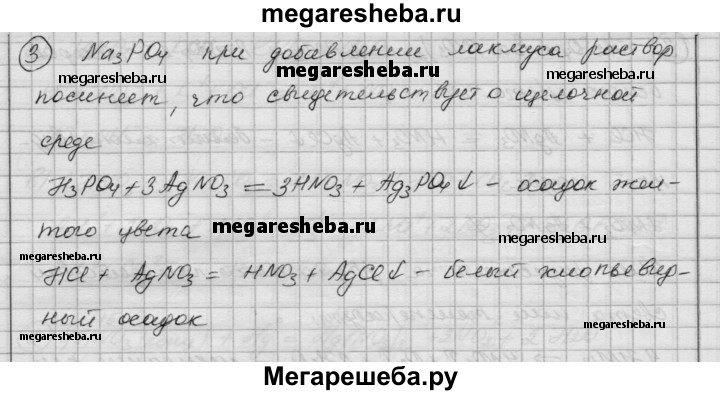 megaresheba.ru
3 Na₃PO₄ при добавлении лакмуса раствор
megaresheba.ru megaresheba.ru megaresheba.ru
посинеет, что свидетельствует о щелочной
среде
H₃PO₄ + 3AgNO₃ = 3HNO₃ + Ag₃PO₄↓ - осадок жел-
того цвета megaresheba.ru megaresheba.ru
megaresheba.ru
HCl + AgNO₃ = HNO₃ + AgCl↓ - белый хлопьевид-
ный осадок
megaresheba.ru megaresheba.ru
Мегарешеба.ру